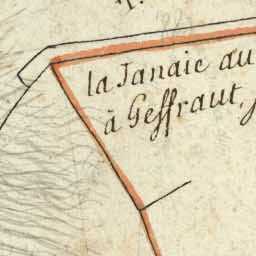 la Janaie au
à Geffraut,